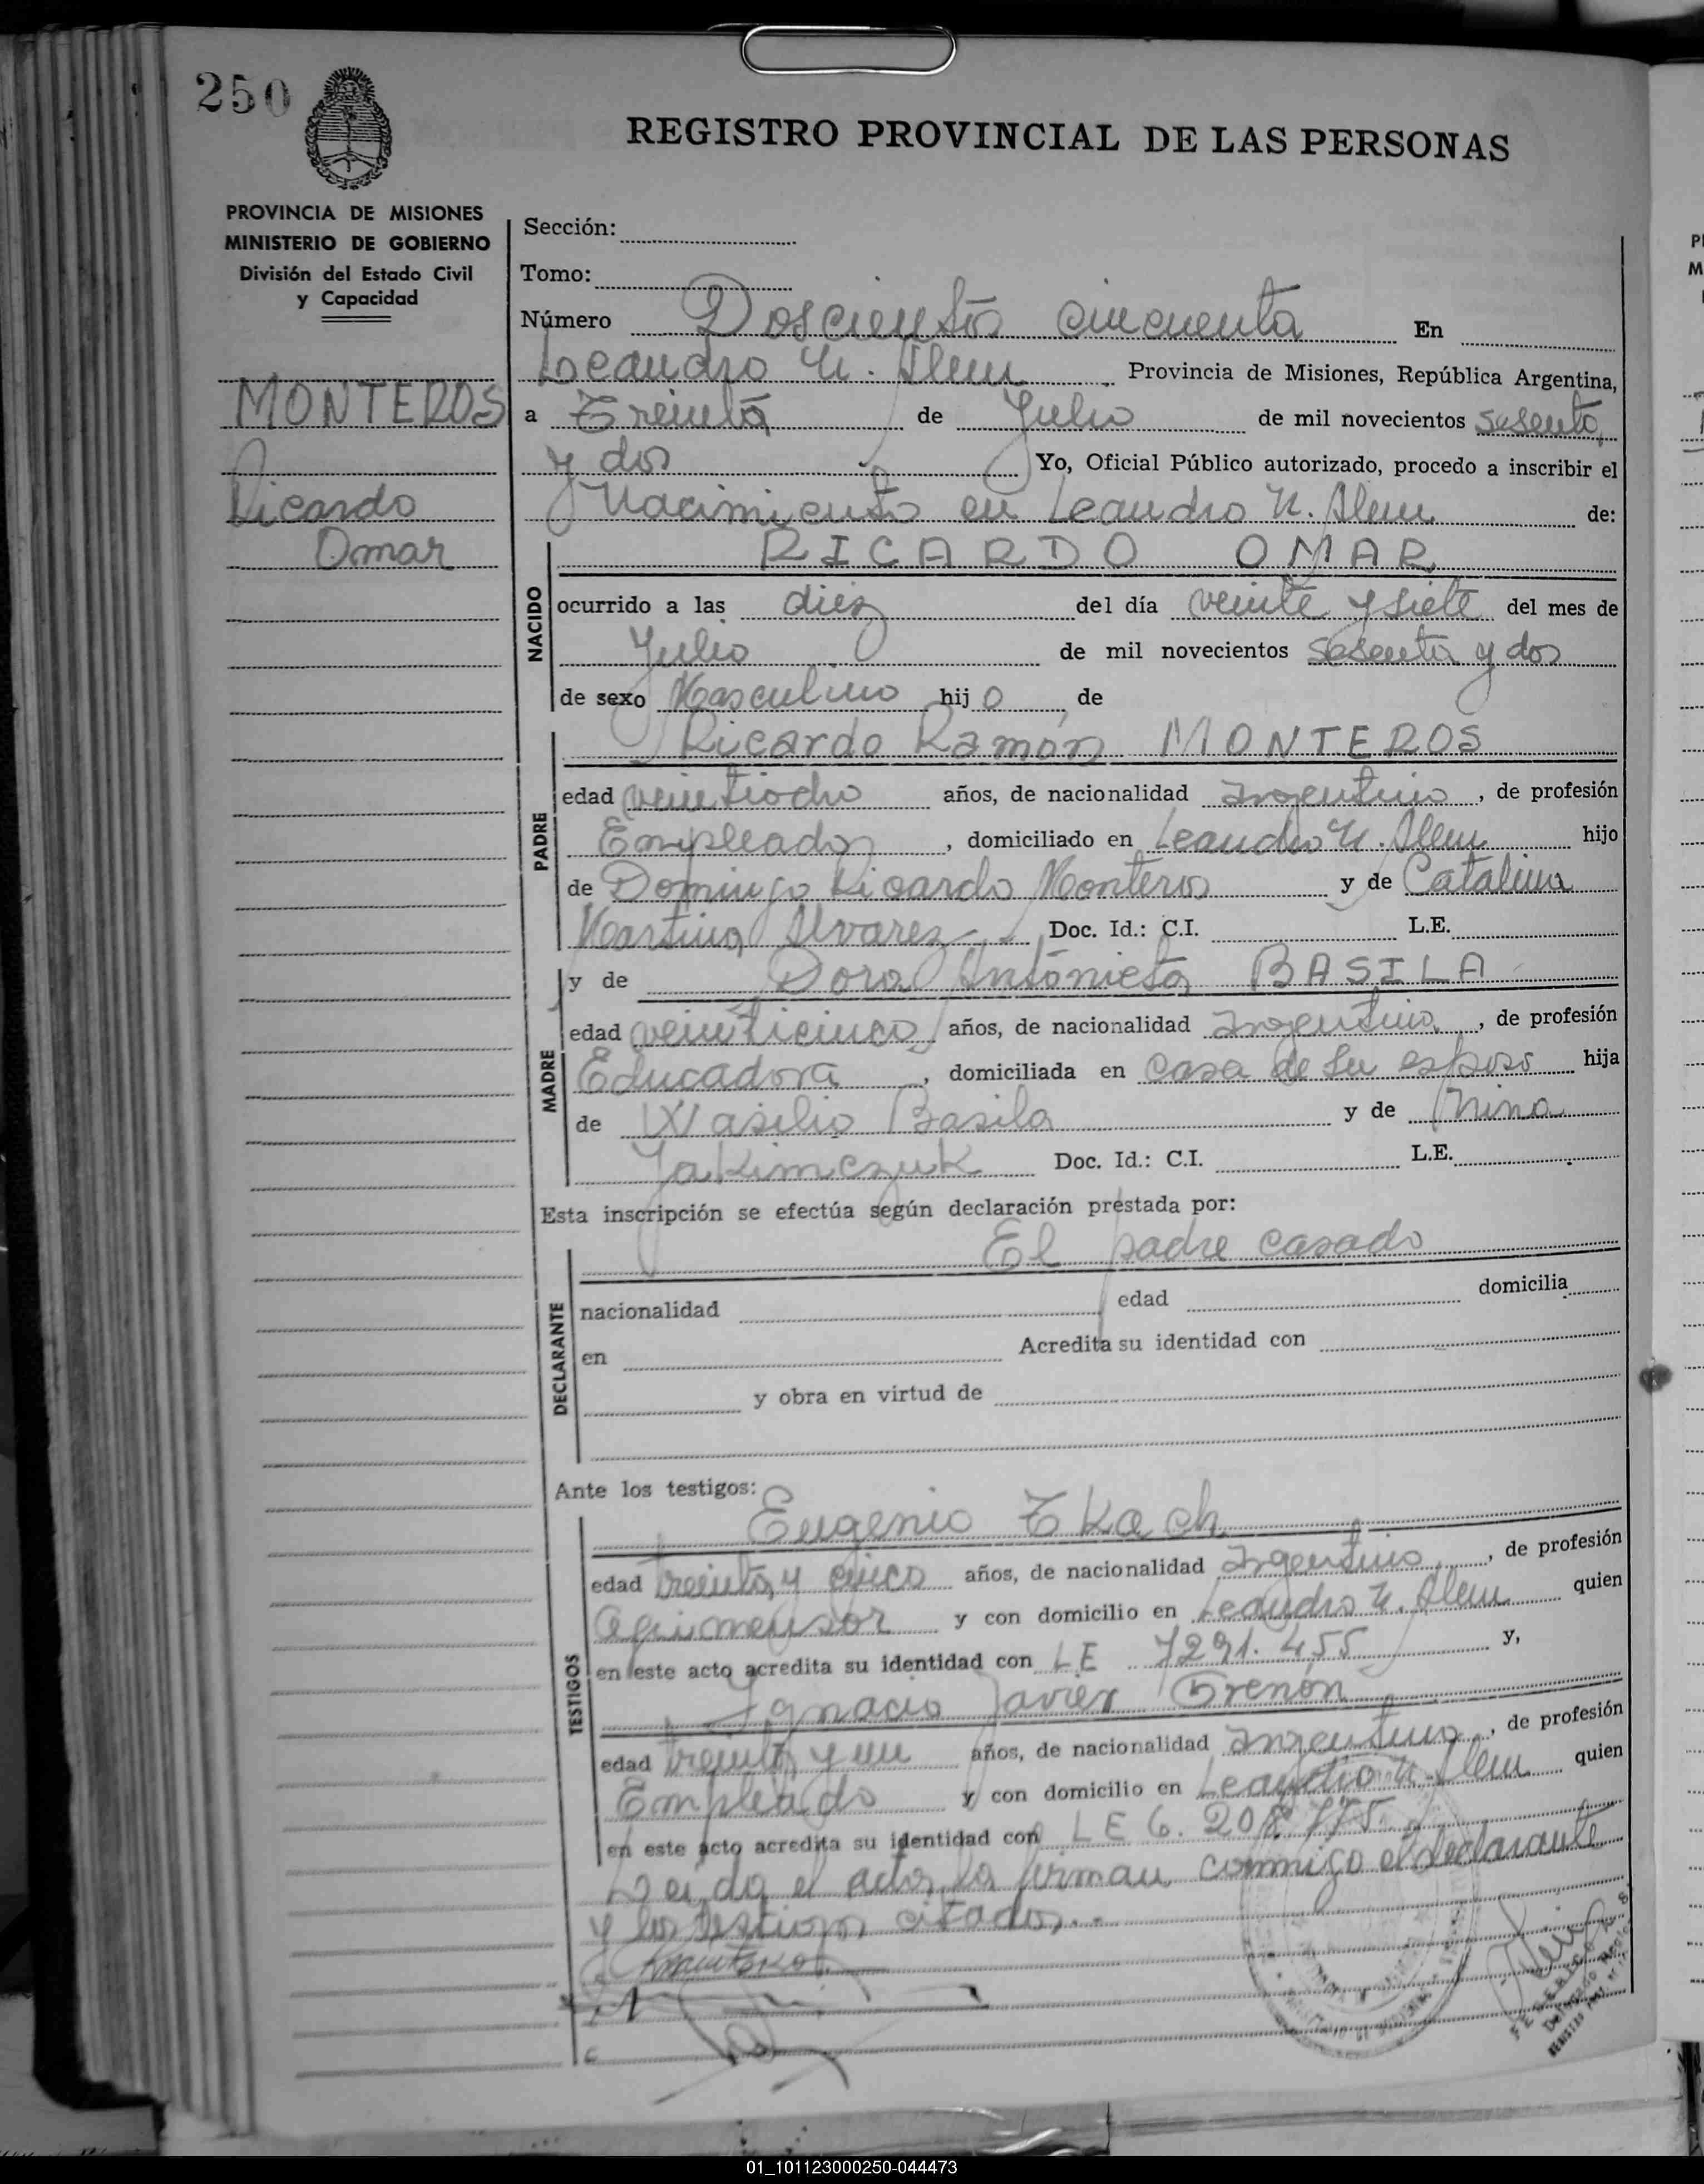 250
REGISTRO PROVINCIAL DE LAS PERSONAS
PROVINCIA DE MISIONES
MINISTERIO DE GOBIERNO
División del Estado Civil
y Capacidad
MONTEROS
Ricardo
Omar
Sección:
Tomo:
Número Doscientos cincuenta En
Leandro N. Alem Provincia de Misiones, República Argentina,
a Treinta de Julio de mil novecientos sesenta
y dos Yo, Oficial Público autorizado, procedo a inscribir el
Nacimiento en Leandro N. Alem de:
NACIDO
RICARDO OMAR
ocurrido a las diez del día veinte y siete del mes de
Julio de mil novecientos sesenta y dos
de sexo Masculino hijo de
PADRE
Ricardo Ramón MONTEROS
edad veintiocho años, de nacionalidad Argentino, de profesión
Empleado, domiciliado en Leandro N. Alem hijo
de Domingo Ricardo Monteros y de Catalina
Martina Alvarez Doc. Id.: C.I. L.E.
MADRE
y de Dora Antonieta BASILA
edad veinticinco años, de nacionalidad Argentina, de profesión
Educadora, domiciliada en casa de su esposo hija
de Wasilio Basila y de Nina
Jakimczuk Doc. Id.: C.I. L.E.
Esta inscripción se efectúa según declaración prestada por:
DECLARANTE
El padre casado
nacionalidad edad domicilia
en Acredita su identidad con
y obra en virtud de
Ante los testigos:
TESTIGOS
Eugenio Tkach
edad treinta y cinco años, de nacionalidad Argentino, de profesión
Agrimensor y con domicilio en Leandro N. Alem quien
en este acto acredita su identidad con LE 7291.455 y,
Ignacio Javier Grenón
edad treinta y un años, de nacionalidad Argentino, de profesión
Empleado y con domicilio en Leandro N. Alem quien
en este acto acredita su identidad con LE 6.208.775.
Leida el acta, la firman conmigo el declarante
y los testigos citados.-
01_101123000250-044473